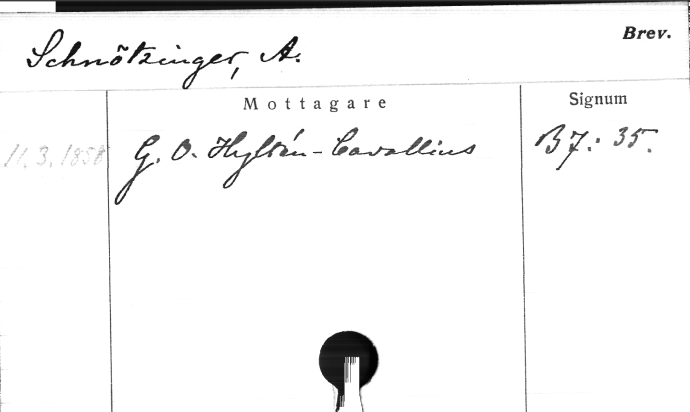 Schnötzinger, A.
Brev.
Mottagare
Signum
11.3.1858
G. O. Hyltén-Cavallius
B7:35.